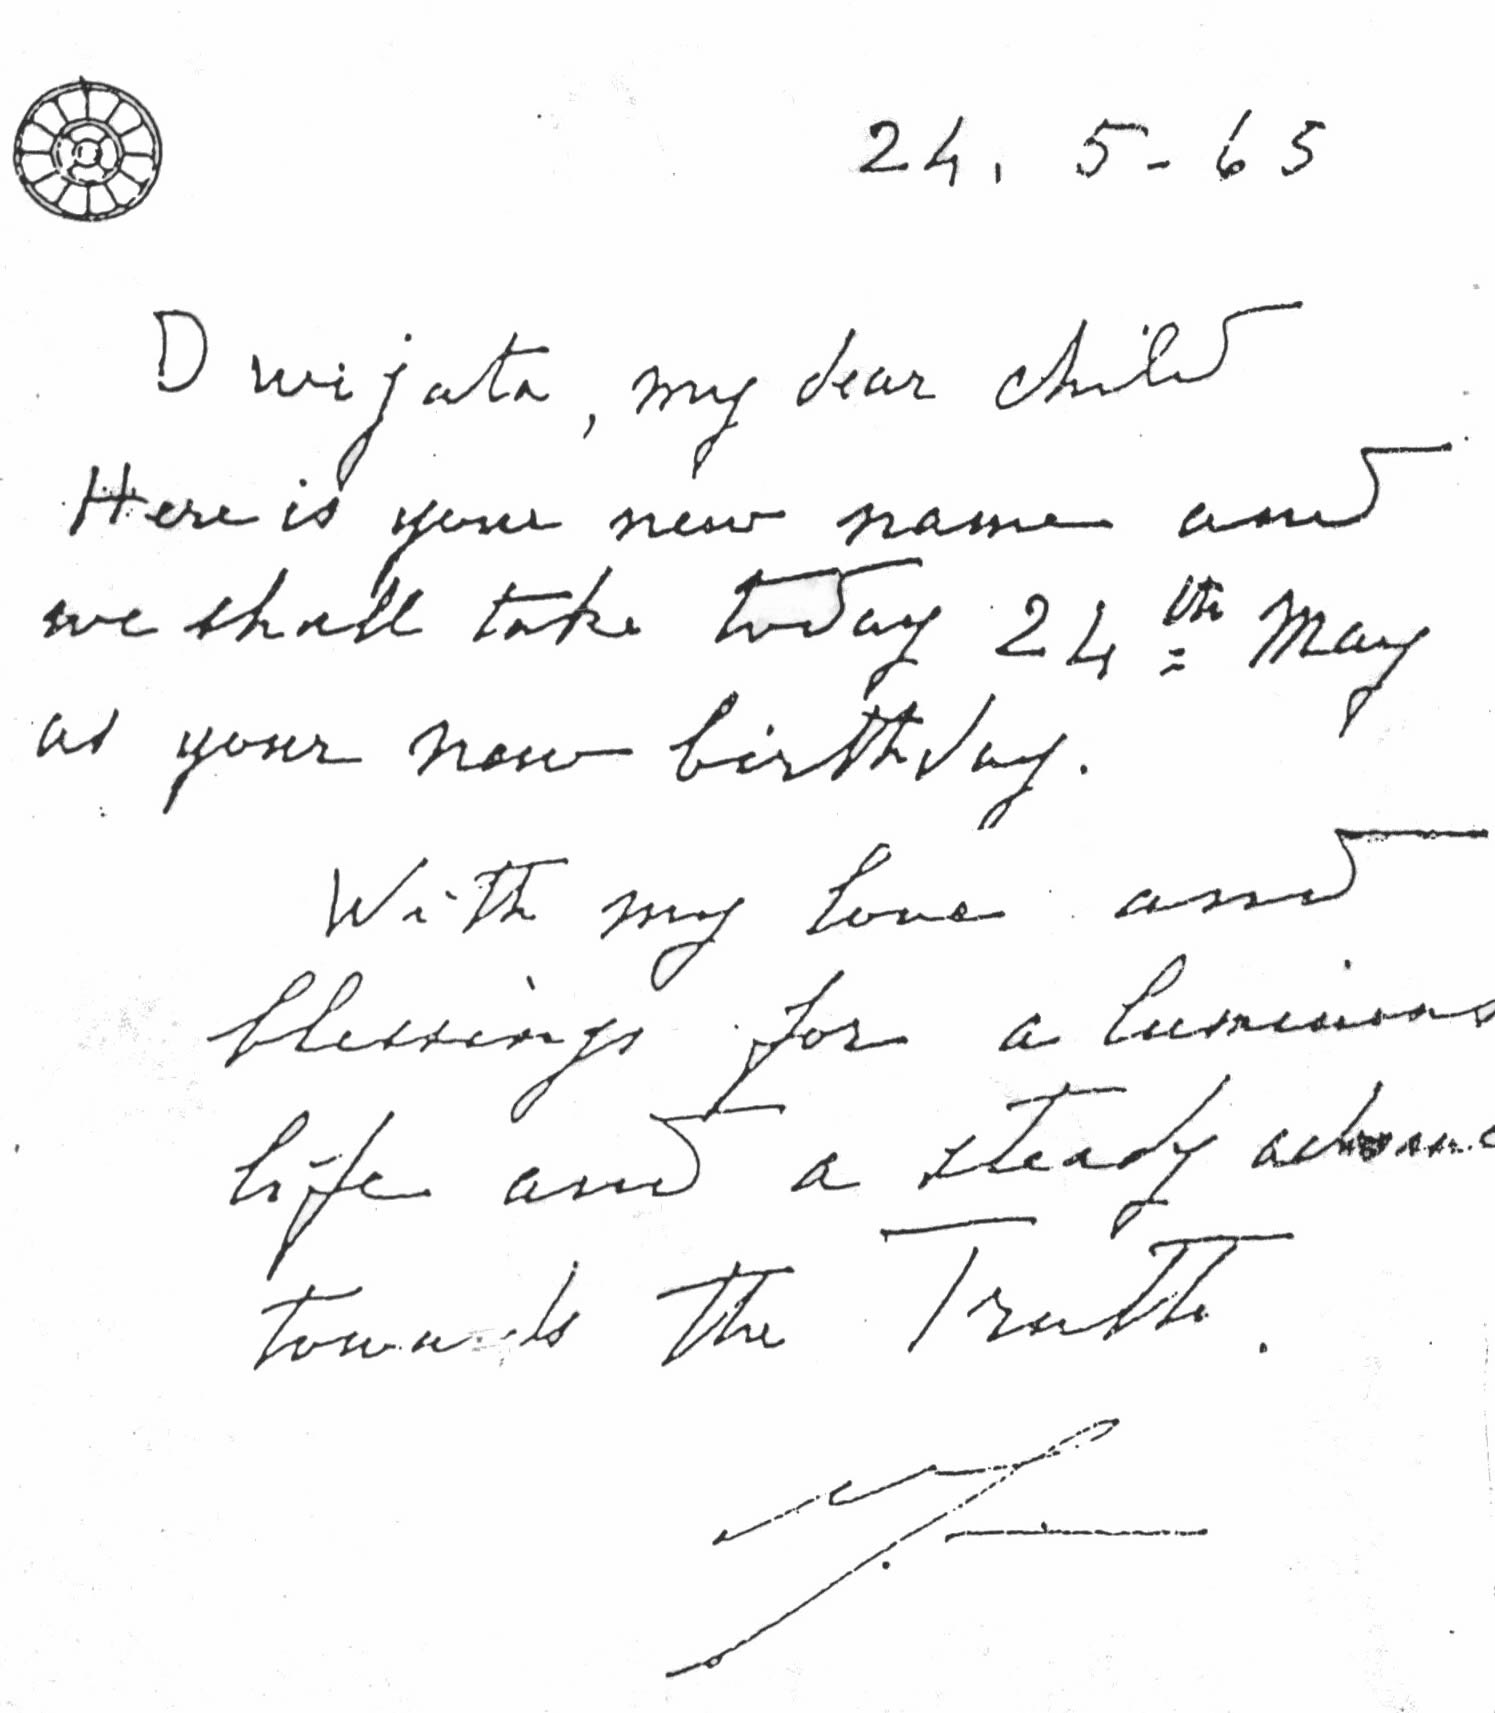 24. 5-65
Dwijata, my dear child
Here is your new name and
we shall take today 24th May
as your new birthday.
With my love and
blessings for a luminous
life and a steady
towards the Truth.